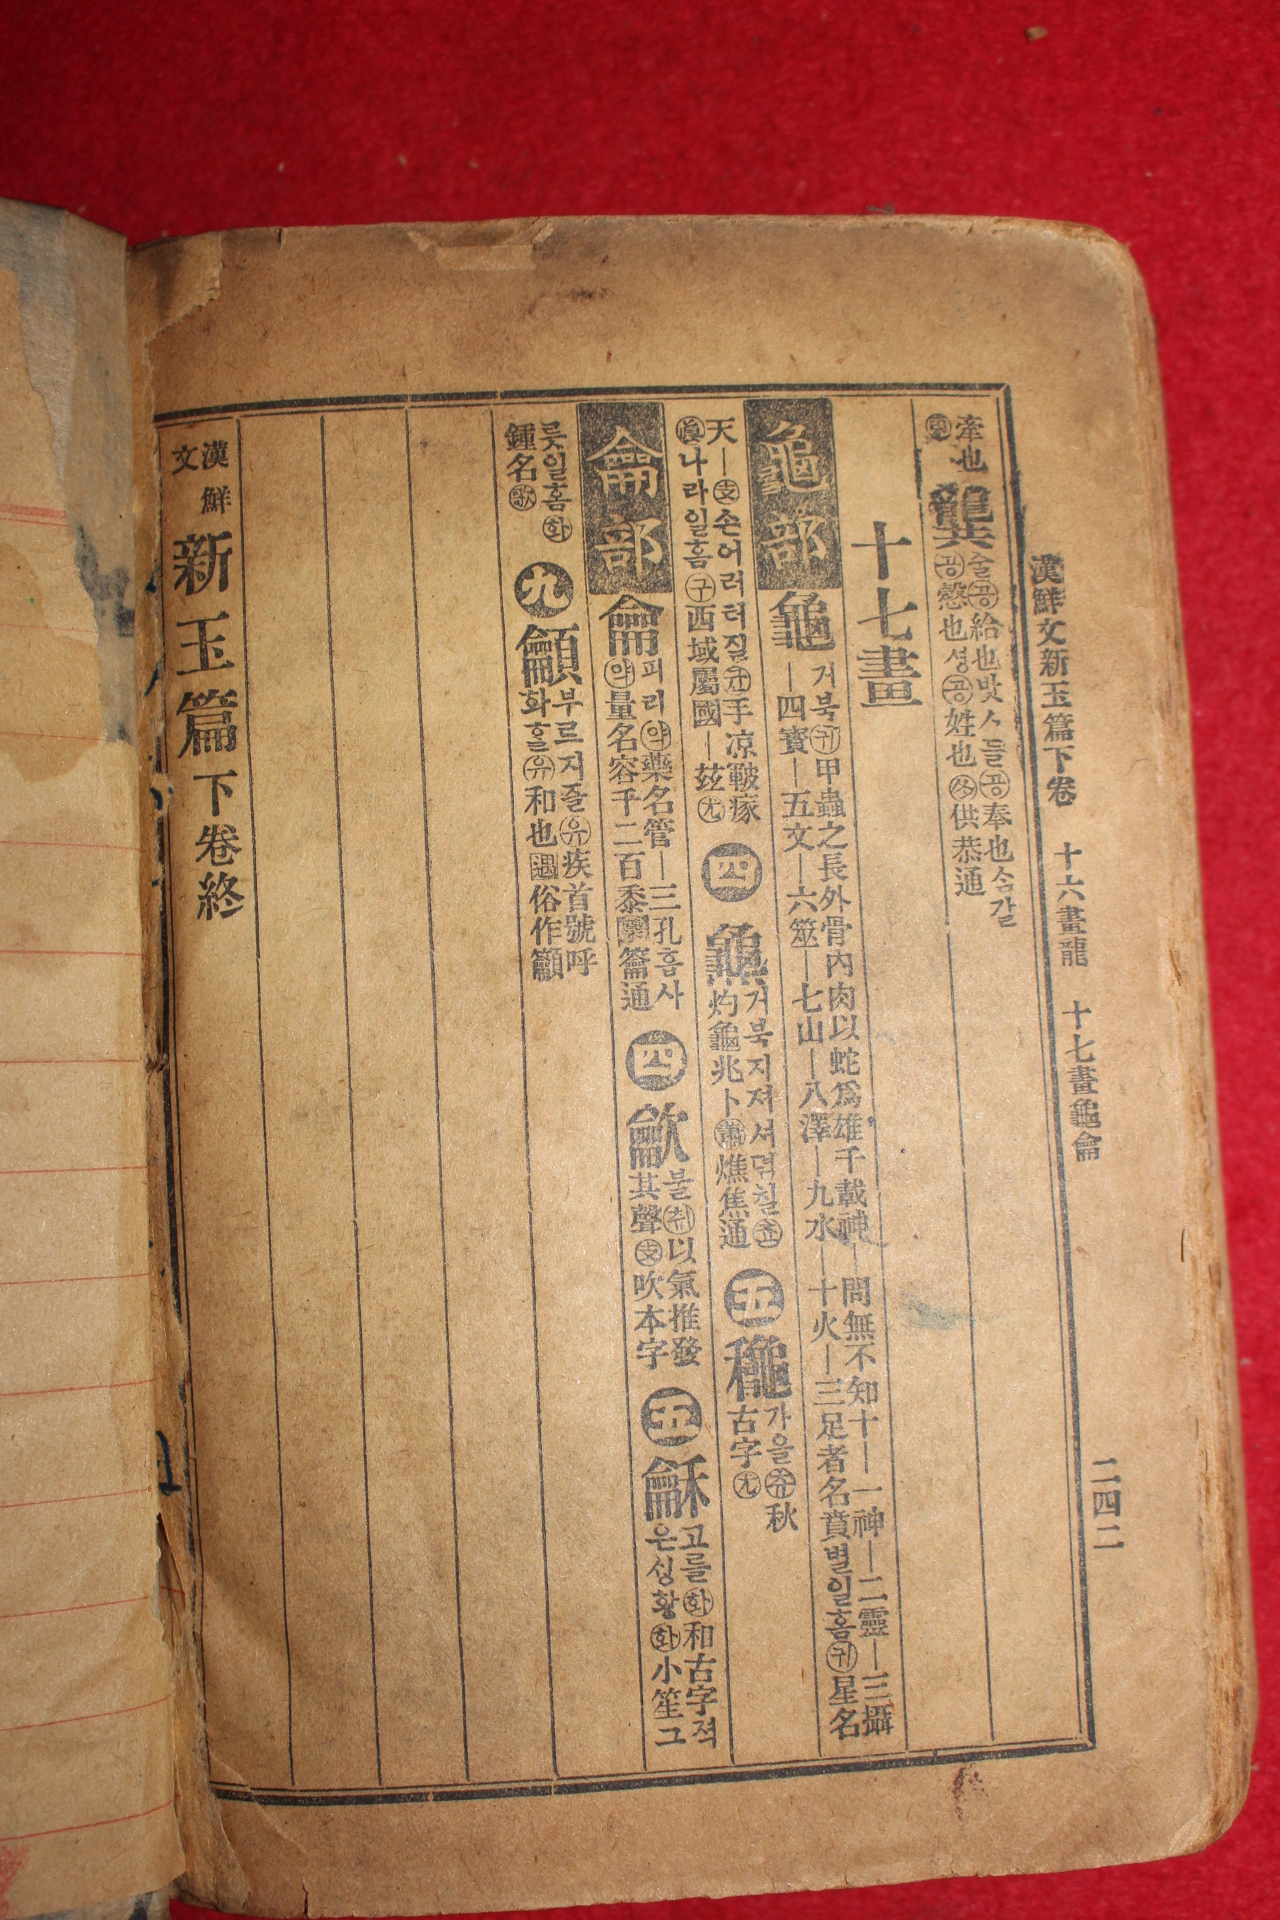 漢鮮文新玉篇下卷 十六畫龍 十七畫龜龠 二四二
牽也
龔
給也
奉也
慤也
姓也
供恭通
十七畫
龜部
龜 거북귀甲蟲之長外骨內肉以蛇爲雄千載神—問無不知十—一神—二靈—三攝
—四寶—五文—六筮—七山—八澤—九水—十火—三足者名賁별일홈귀星名
天—支손어러터질균手凉皸瘃
眞나라일홈구西域屬國—玆尤
四
거북지져셔덞칠
灼龜兆卜蕭燋焦通
五
龝 가을츄秋
古字尤
龠部
龠 피리약藥名管—三孔홉사
약量名容千二百黍藥籥通
四
龡 불취以氣推發
其聲支吹本字
五
龢 고를화和古字젹
은싱황화小笙그
릇일홈화
鍾名歌
九
龥 부르지즐유疾首號呼
화홀유和也遇俗作籲
漢鮮文新玉篇下卷終